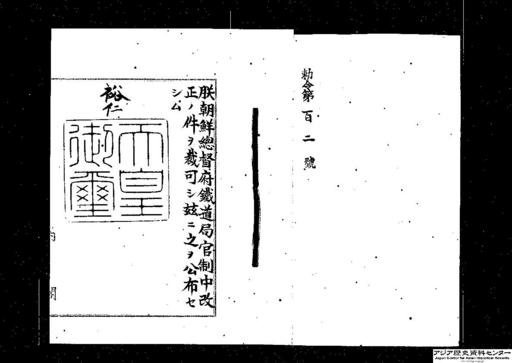 勅令第百二號
朕朝鮮總督府鐵道局官制中改
正ノ件ヲ裁可シ玆ニ之ヲ公布セ
シム
裕仁
天皇御璽
内閣
アジア歴史資料センター
Japan Center for Asian Historical Records